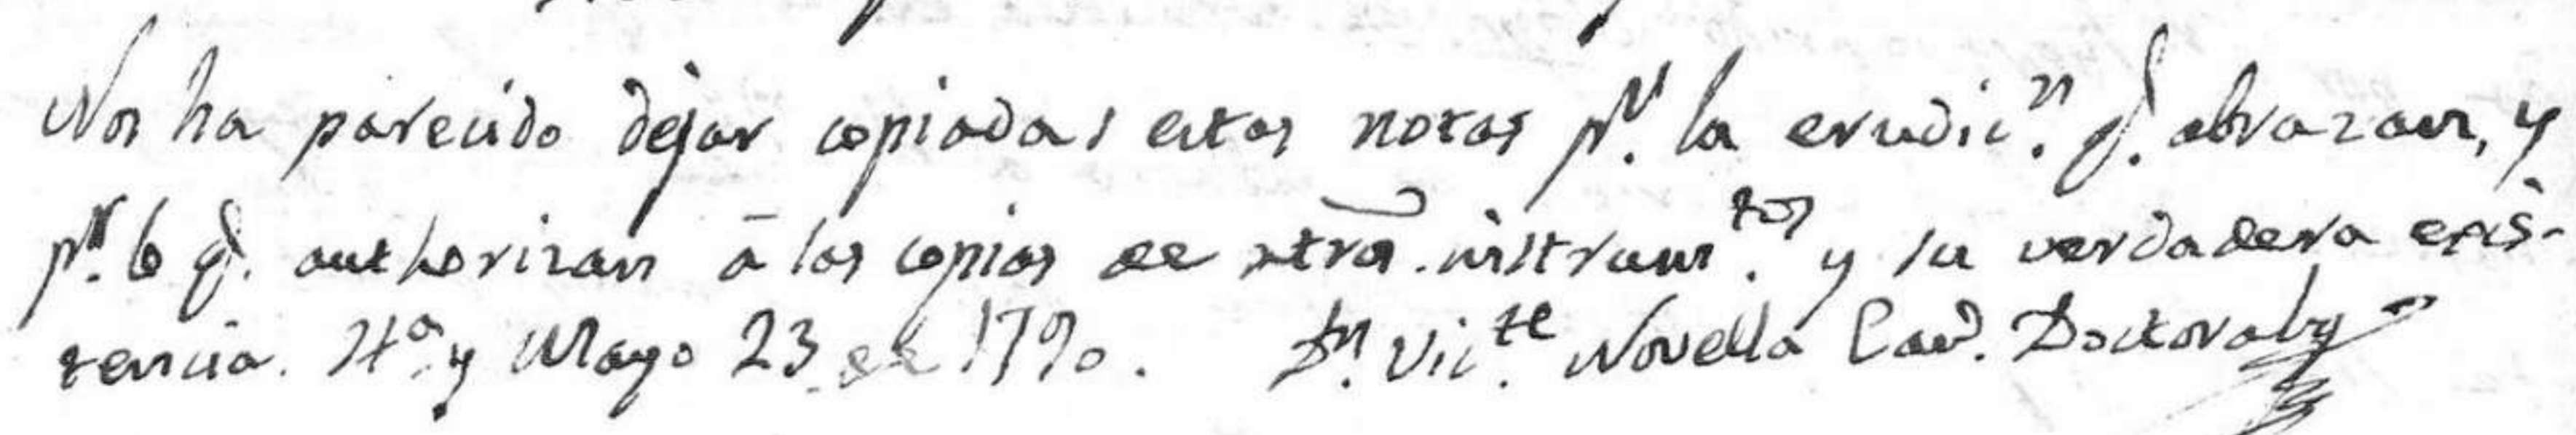 Nos ha parecido dejar copiadas estas notas pr. la erudicn. q. abrazan, y
pr. lo q. authorizan â las copias de instrumtos. y su verdadera exis-
tencia. Ha. y Mayo 23 de 1790. Dn. Victe. Novella Can. Doctoral